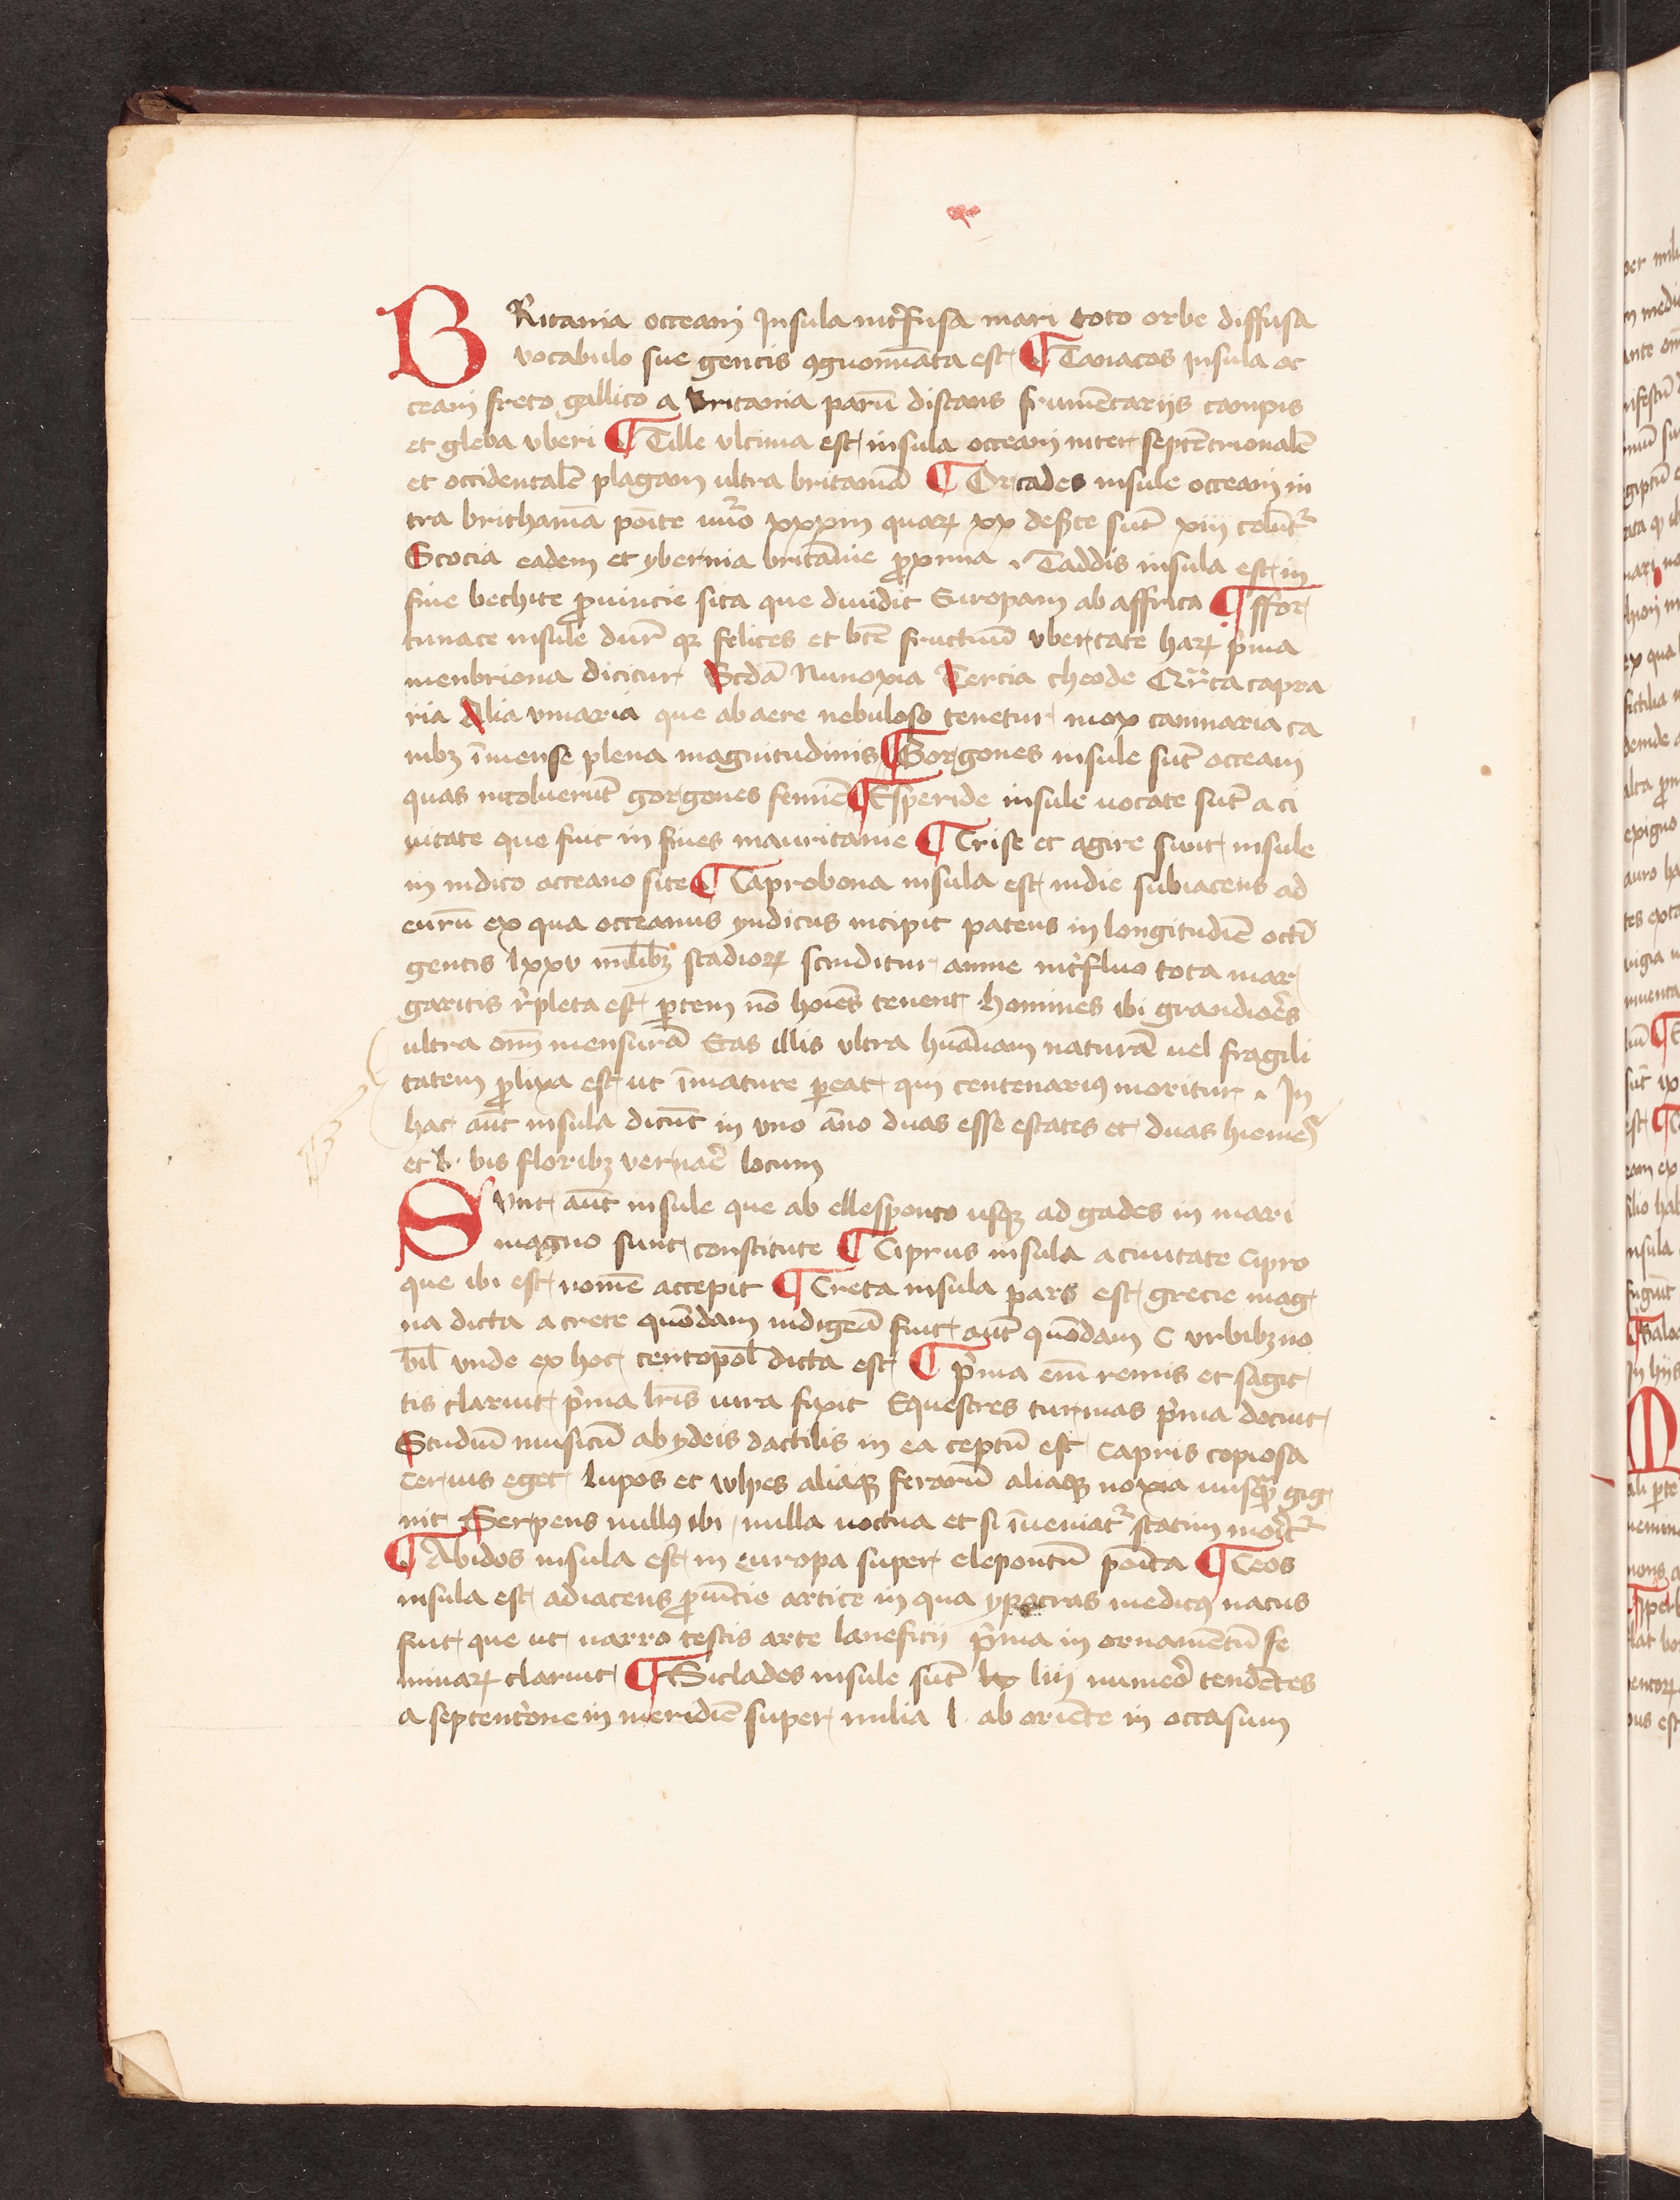 BRitania occeani Insula int̾fusa mari toto orbe diffusa
vocabulo sue gentis ꝯgnominata est ¶ Tanacos Insula oc
ceani freto gallico a britania parū distans frumētarijs campis
et gleba vberi ¶ Tille vltima est insula occeani inter septētrionalē
et occidentalē plagam ultra britaniā ¶ Orcades insule occeani in
tra brithaniā poīte nūo xxxiii quaꝝ xx desͬte sūt xiij colūt᷑
Scocia eadem et ybernia britānie ꝓxima . Taddis insula est in
fine bechite ꝓuincie sita que diuidit Europam ab affrica ¶ ffor
tunate insule dur̄ qꝫ felices et btē fructuū vbertate haꝝ pͥma
menbriona dicitur Scdā Nunoxia Tercia theode Qrͬta capra
ria Alia vinaria que ab aere nebuloso tenetur mox cannaria ca
nibꝫ īmense plena magnitudinis ¶ Gorgones insule sūt occeani
quas incoluerūt gorgones feminē ¶ Esperide insule uocate sūt a ci
uitate que fuit in fines mauritanie ¶ Crise et agire sunt insule
in indico occeano site ¶ Taprobona insula est indie subiacens ad
eurū ex qua occeanus yndicus incipit patens in longitudiē octī
gentis lxxv milibꝫ stadioꝝ scinditur amne int̾fluo tota mar
garitis r̾pleta est ꝑtem nō hoīes tenent homines ibi grandiores
ultra om̄ mensurā Etas illis vltra huānam naturā uel fragili
tatem ꝓlixa est ut īmature ꝑeat qui centenariꝰ moritur . In
hac aūt insula dicūt in vno āno duas esse estates et duas hiemes
et b. bis floribꝫ vernare locum
Sunt aūt insule que ab ellesponto usqꝫ ad gades in mari
magno sunt constitute ¶ Ciprus insula a ciuitate cipro
que ibi est nomē accepit ¶ Creta insula pars est grecie mag
na dicta a crete quōdam indigeā fuit aūt quōdam C vrbibꝫ no
bil̄ vnde ex hoc centopol̄ dicta est ¶ pͥma em̄ remis et sagit
tis claruit pͥma lr̄is iura fixit Equestres turmas pͥma docuit
Studiū musicū ab ydeis dactilis in ea ceptū est capris copiosa
ceruis eget lupos et wlpes aliaqꝫ ferarū aliaqꝫ noxia nusqͣ gig
nit Serpens nullꝰ ibi nulla noctua et si īueniat᷑ statim morit᷑
¶ Abidos insula est in europa super elepontū poīta ¶ Ceos
insula est adiacens ꝓuīcie artice in qua ypocras medicꝰ natus
fuit que ut uarro testis arte laneficij pͥma in ornamentū fe
minaꝝ claruit ¶ Siclades insule sūt liij numeō tendētes
a septentͥone in meridiē super milia l. ab oriēte in occasum